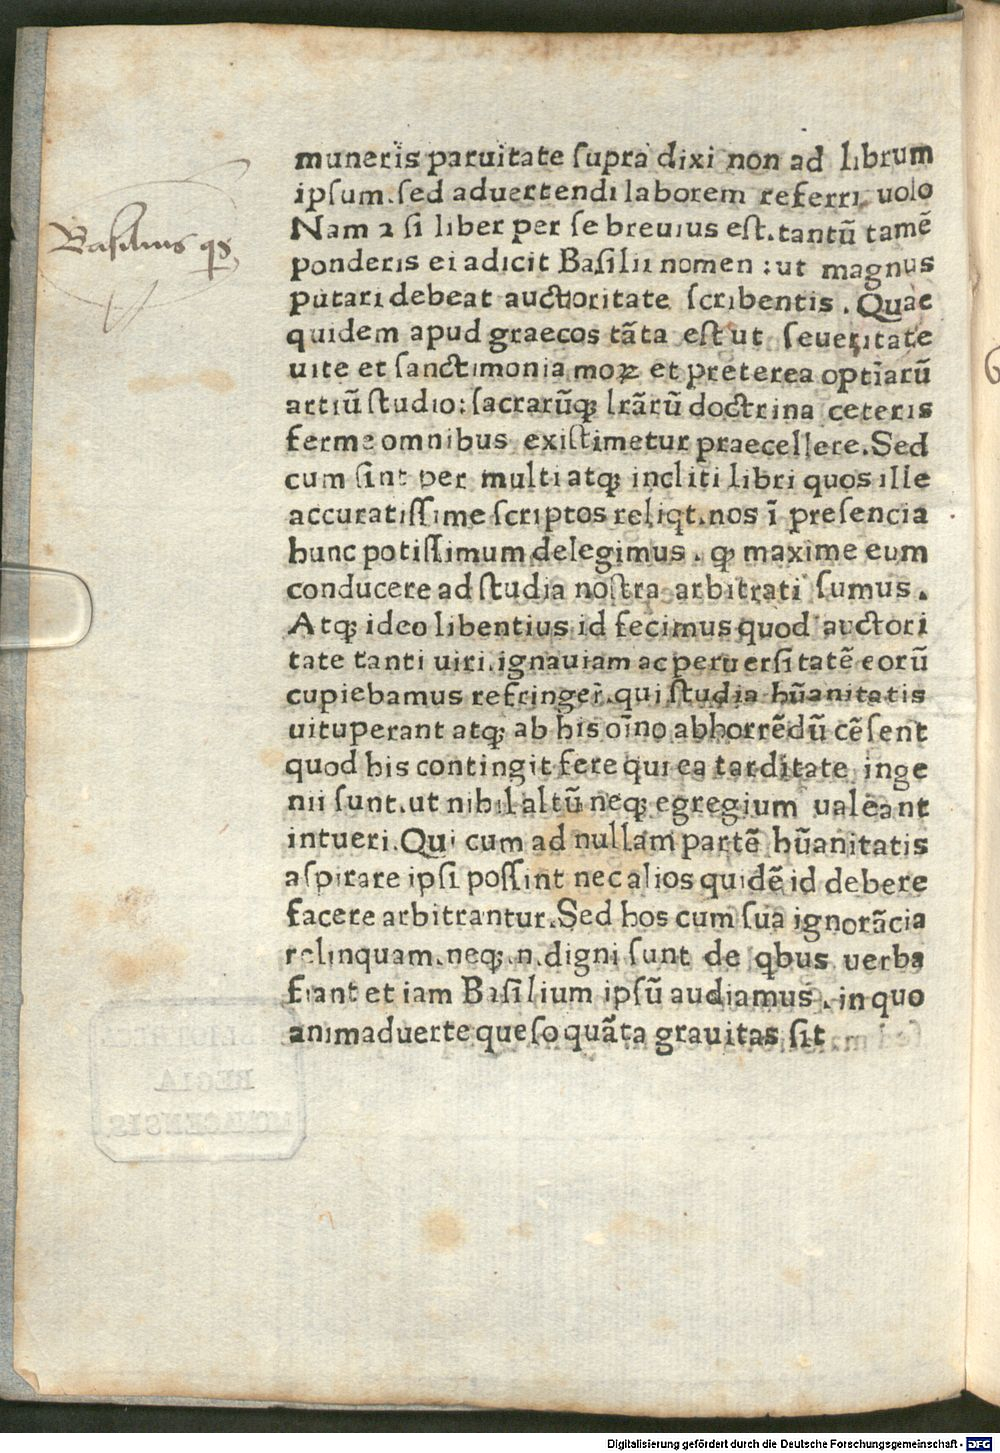 Basilius qs
muneris paruitate supra dixi non ad librum
ipsum.sed aduertendi laborem referri uolo
Nam ⁊ si liber per se breuius est.tantū tamē
ponderis ei adicit Basilii nomen : ut magnus
putari debeat auctoritate scribentis . Quae
quidem apud graecos tāta est ut seueritate
uite et sanctimonia moꝝ et preterea optīarū
artiū studio : sacrarūqꝫ lrārū doctrina ceteris
ferme omnibus existimetur praecellere. Sed
cum sint per multi atqꝫ incliti libri quos ille
accuratissime scriptos reliqt.nos ī presencia
hunc potissimum delegimus . qꝫ maxime eum
conducere ad studia nostra arbitrati sumus .
Atqꝫ ideo libentius id fecimus quod auctori
tate tanti uiri.ignauiam ac peruersitatē eorū
cupiebamus refringer̄.qui studia hūanitatis
uituperant atqꝫ ab his oīno abhorrēdū cēsent
quod his contingit fere qui ea tarditate inge
nii sunt.ut nihil altū neqꝫ egregium ualeant
intueri.Qui cum ad nullam partē hūanitatis
aspirare ipsi possint nec alios quidē id debere
facere arbitrantur.Sed hos cum sua ignorācia
relinquam.neqꝫ.n.digni sunt de qbus uerba
fiant et iam Basilium ipsū audiamus . in quo
animaduerte queso quāta grauitas sit
BIBLIOTHECA
REGIA
MONACENSIS
Digitalisierung gefördert durch die Deutsche Forschungsgemeinschaft - DFG